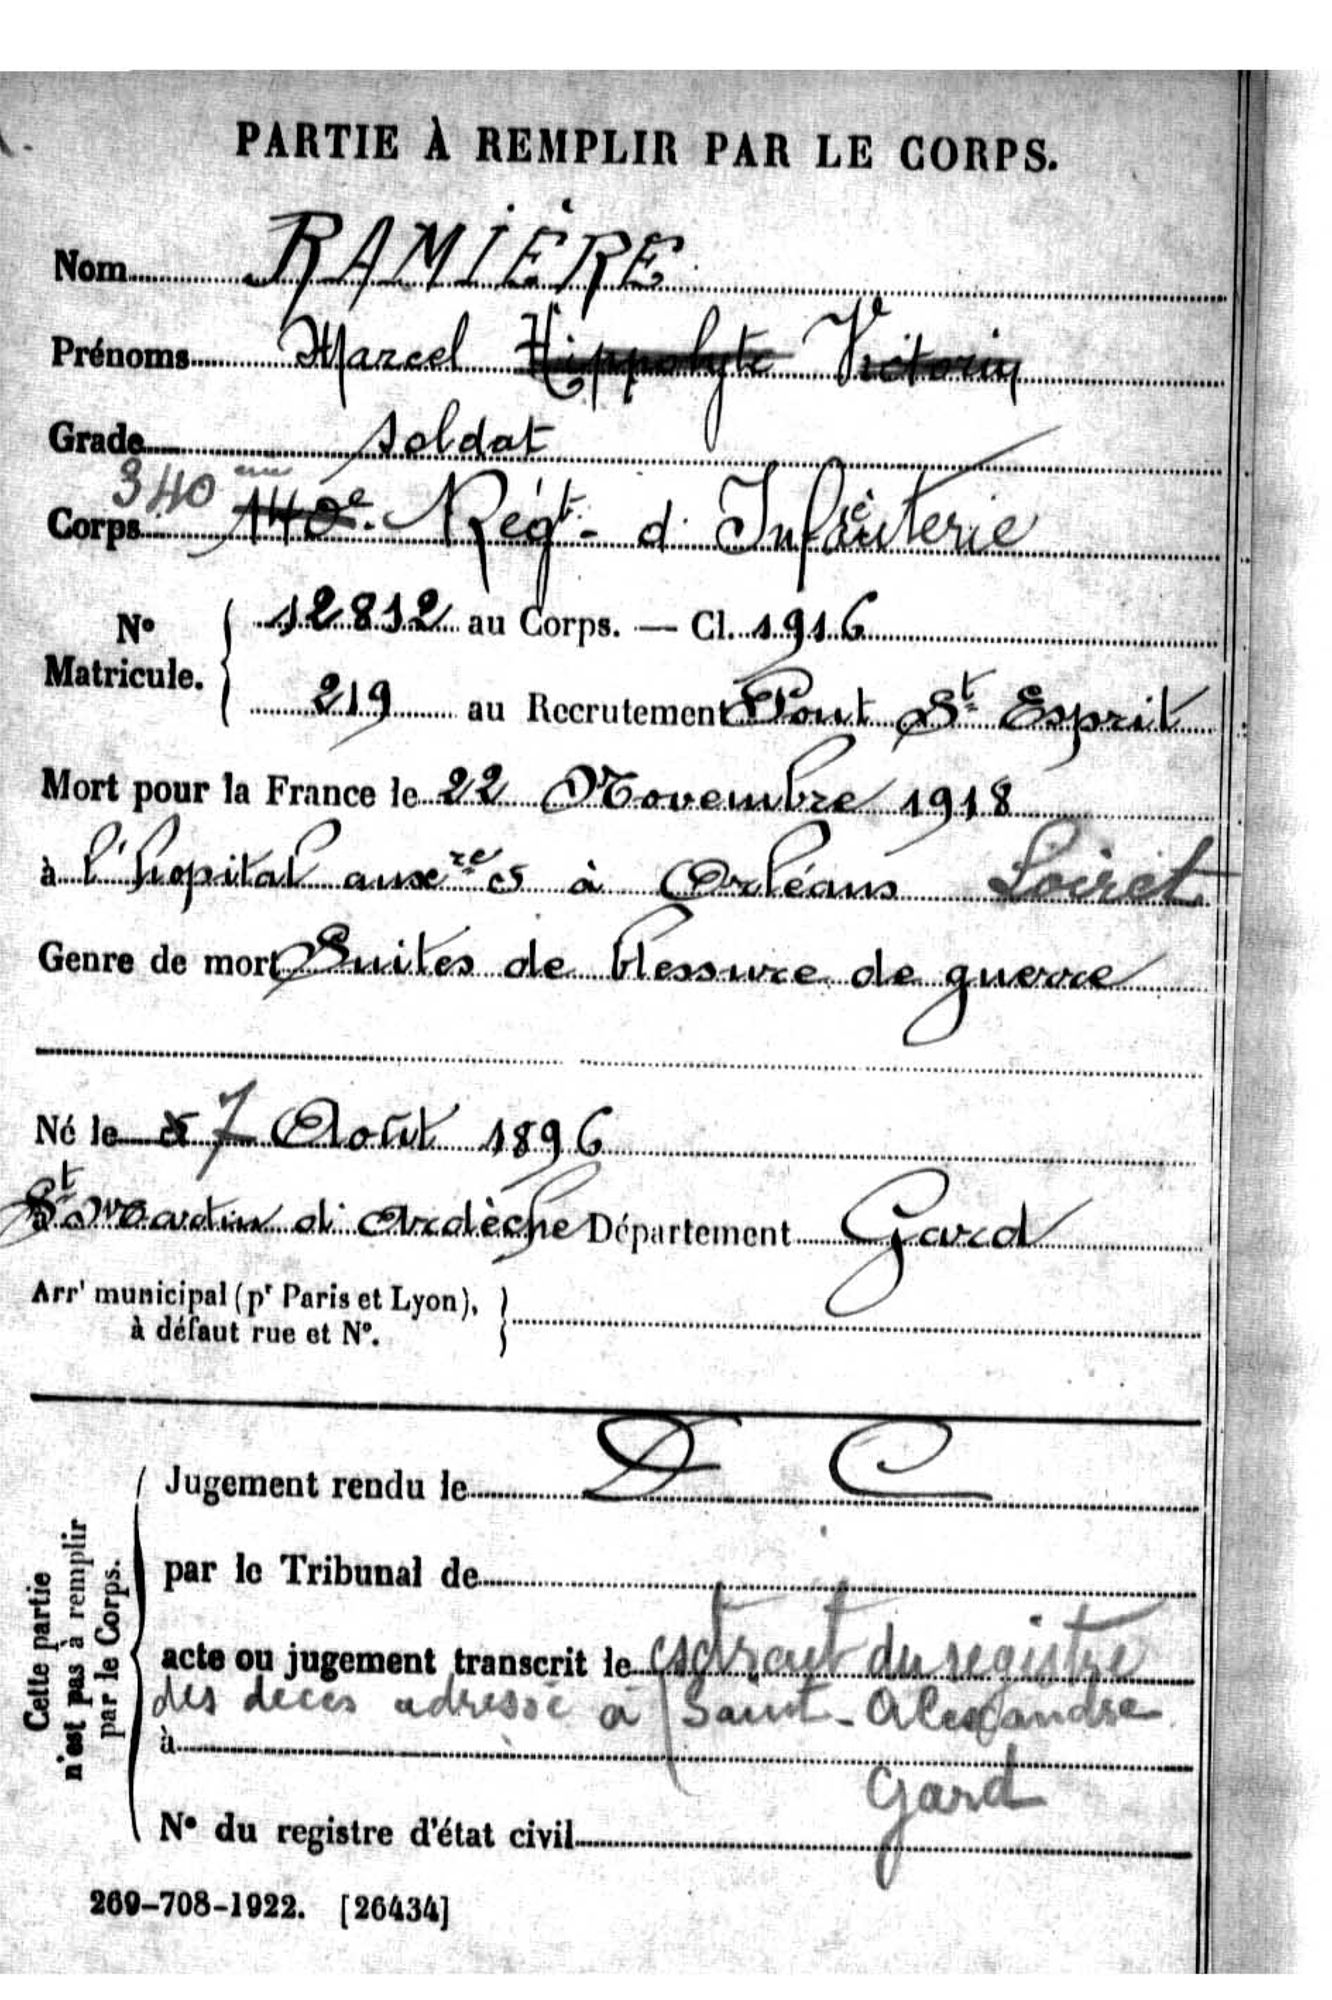 PARTIE À REMPLIR PAR LE CORPS.
Nom RAMIÈRE
Prénoms Marcel Hippolyte Victorin
Grade soldat
340 eme
Corps 140e. Régt. d'Infanterie
No Matricule. 12812 au Corps. — Cl. 1916
219 au Recrutement Pont St Esprit
Mort pour la France le 22 Novembre 1918
à l'hopital auxre 5 à Orléans Loiret
Genre de mort Suites de blessure de guerre
Né le 7 Août 1896
à St Martin d'Ardèche Département Gard
Arrt municipal (pr Paris et Lyon),
à défaut rue et No.
Cette partie
n'est pas à remplir
par le Corps.
Jugement rendu le D C
par le Tribunal de
acte ou jugement transcrit le extrait du registre
des décès adressé à Saint-Alexandre
à
Gard
No du registre d'état civil
269-708-1922. [26434]